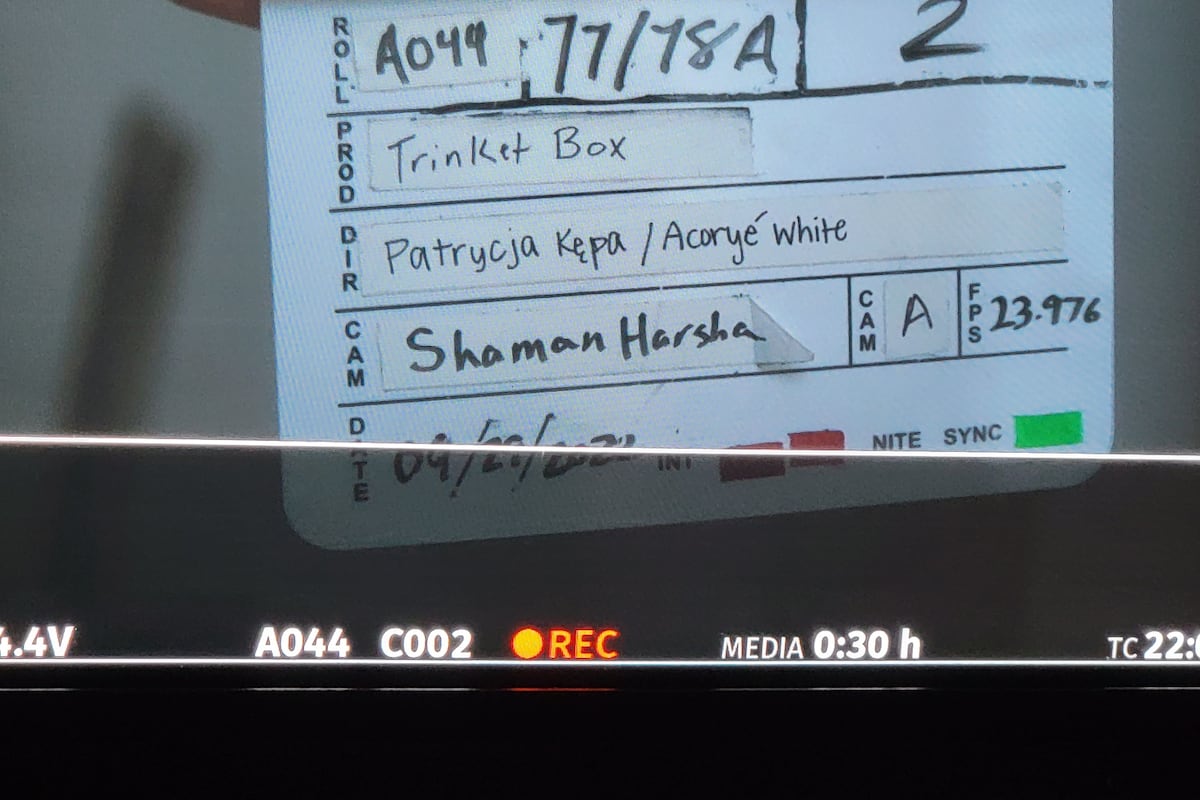 ROLL A044 77/78A 2
PROD Trinket Box
DIR Patrycja Kępa / Acoryé White
CAM Shaman Harsha CAM A FPS 23.976
DATE INT NITE SYNC
4.4V A044 C002 REC MEDIA 0:30 h TC 22:0